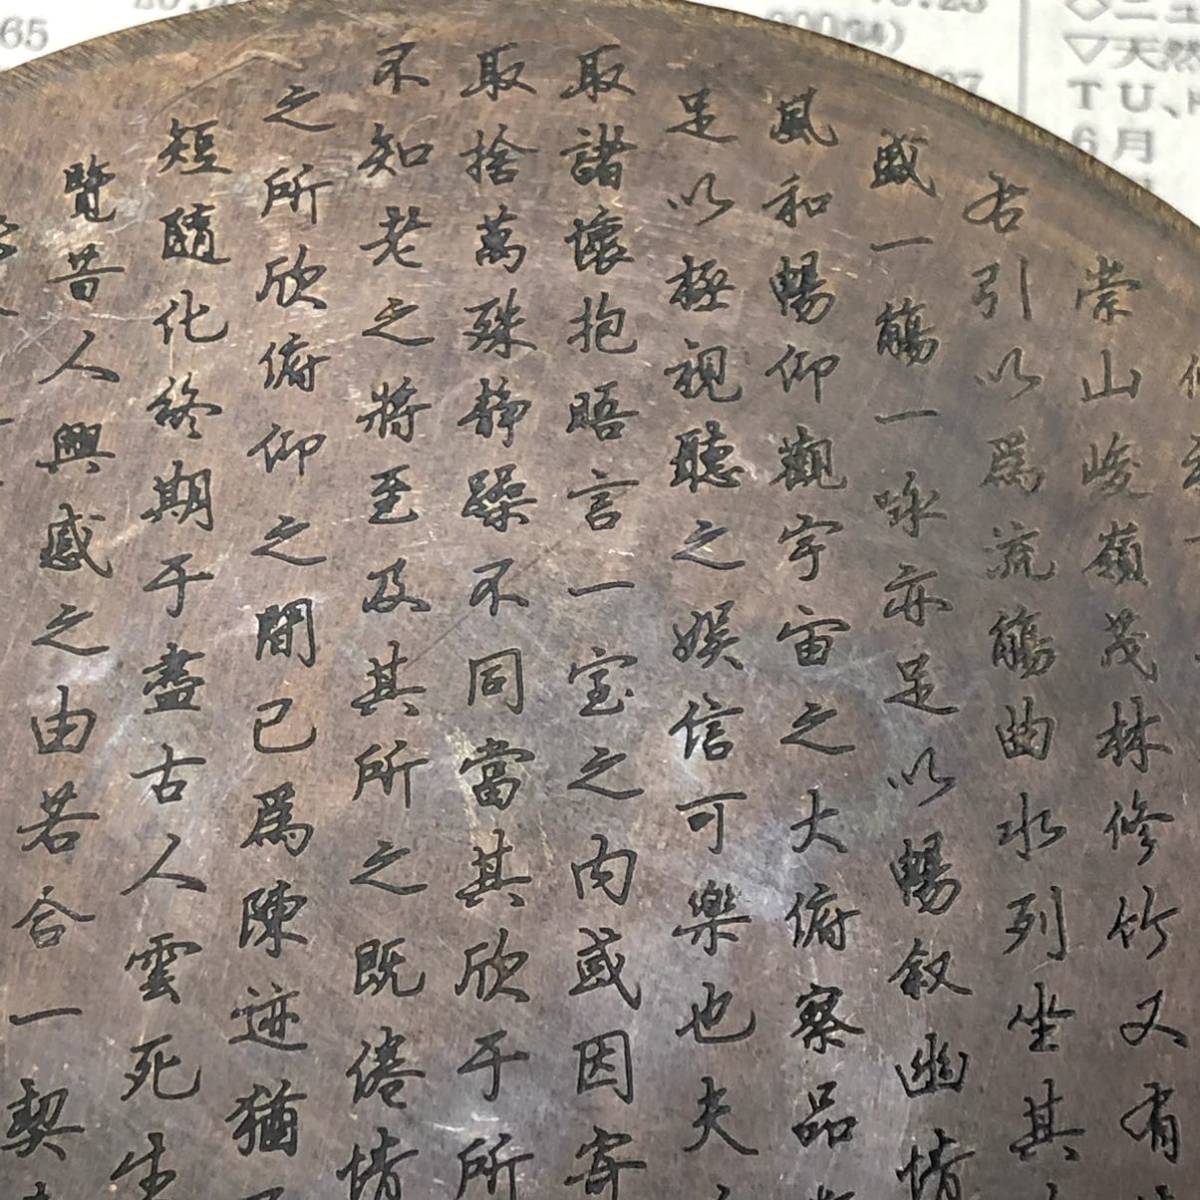 崇山峻嶺茂林修竹又有
右引以爲流觴曲水列坐其
盛一觴一咏亦足以暢叙幽情
風和暢仰觀宇宙之大俯察品
足以極視聽之娱信可樂也夫
取諸懷抱晤言一室之内或因寄
取捨萬殊静躁不同當其欣于所
不知老之將至及其所之既倦情
之所欣俯仰之間已爲陳迹猶
短隨化終期于盡古人雲死生
覽昔人興感之由若合一契
65
▽天然
TU、
6月